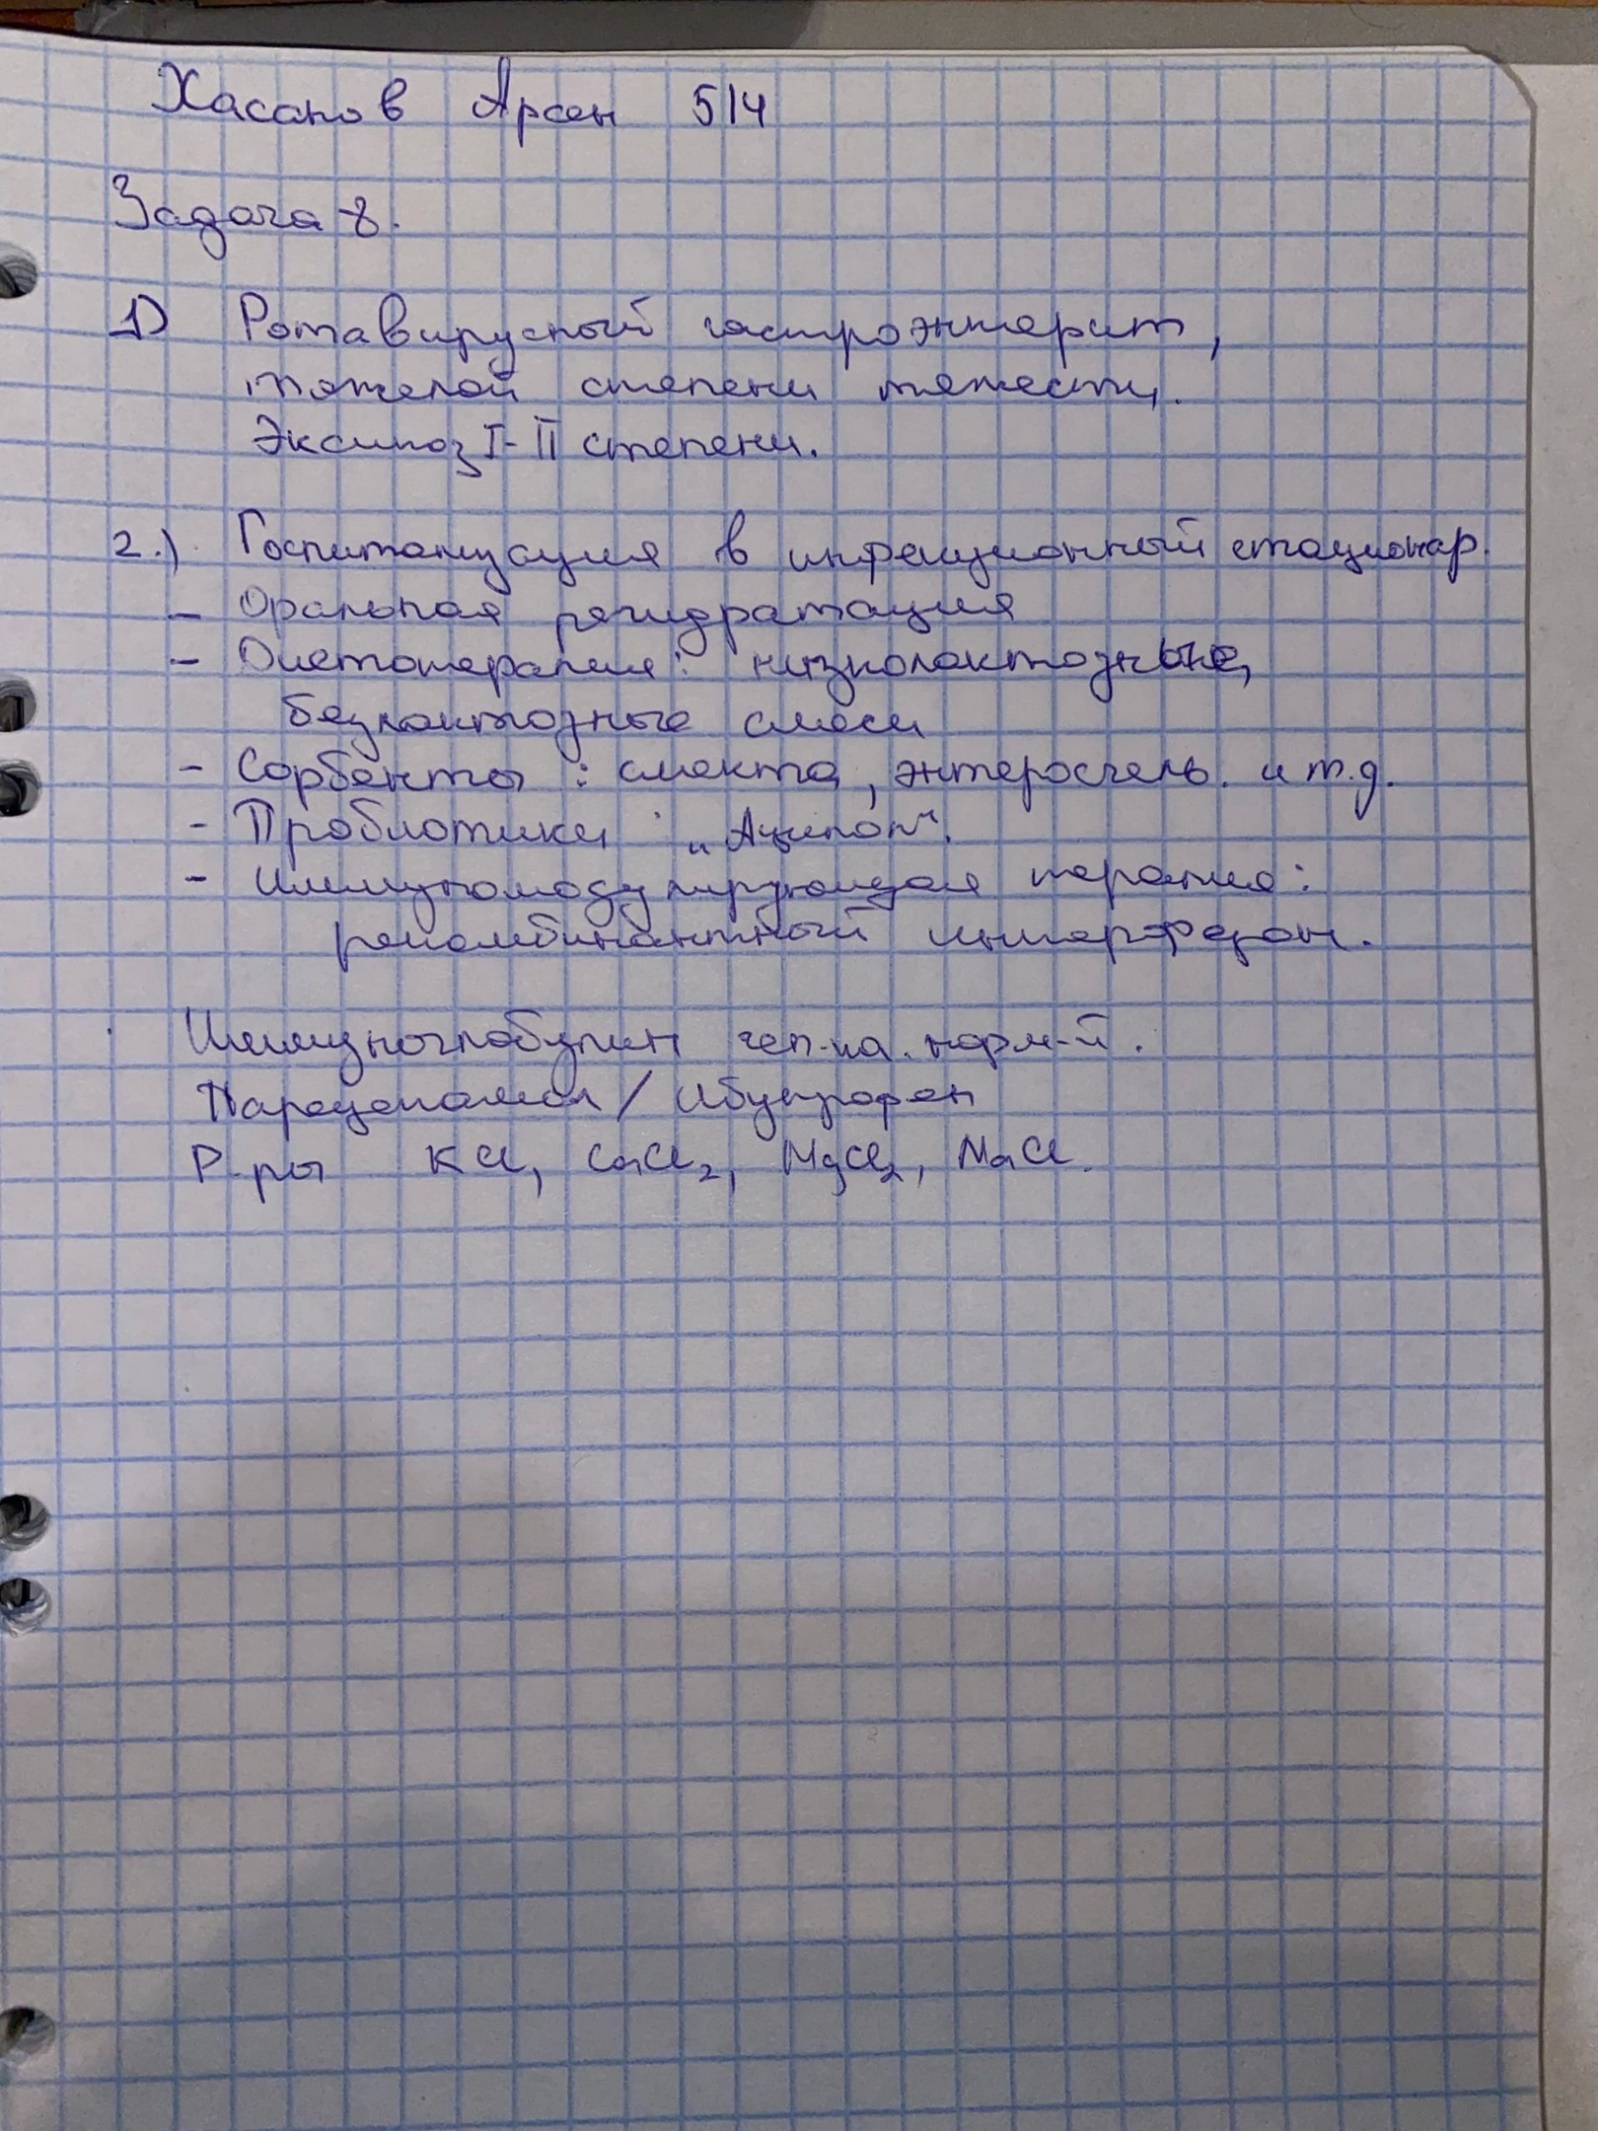 Хасанов Арсен 514
Задача 8.
1) Ротавирусный гастроэнтерит,
тяжелой степени тяжести.
Эксикоз I-II степени.
2.) Госпитализация в инфекционный стационар.
- Оральная регидратация
- Диетотерапия: низколактозные,
безлактозные смеси
- Сорбенты: смекта, энтеросгель. и т.д.
- Пробиотики „Аципол“.
- Иммуномодулирующая терапия:
рекомбинантный интерферон.
Иммуноглобулин чел-ка. норм-й.
Парацетамол / Ибупрофен
Р-ры KCl, CaCl2, MgCl2, NaCl.